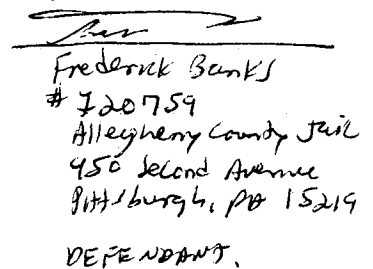 Frederick Banks
# 720759
Allegheny County Jail
950 Second Avenue
Pittsburgh, PA 15219
DEFENDANT.